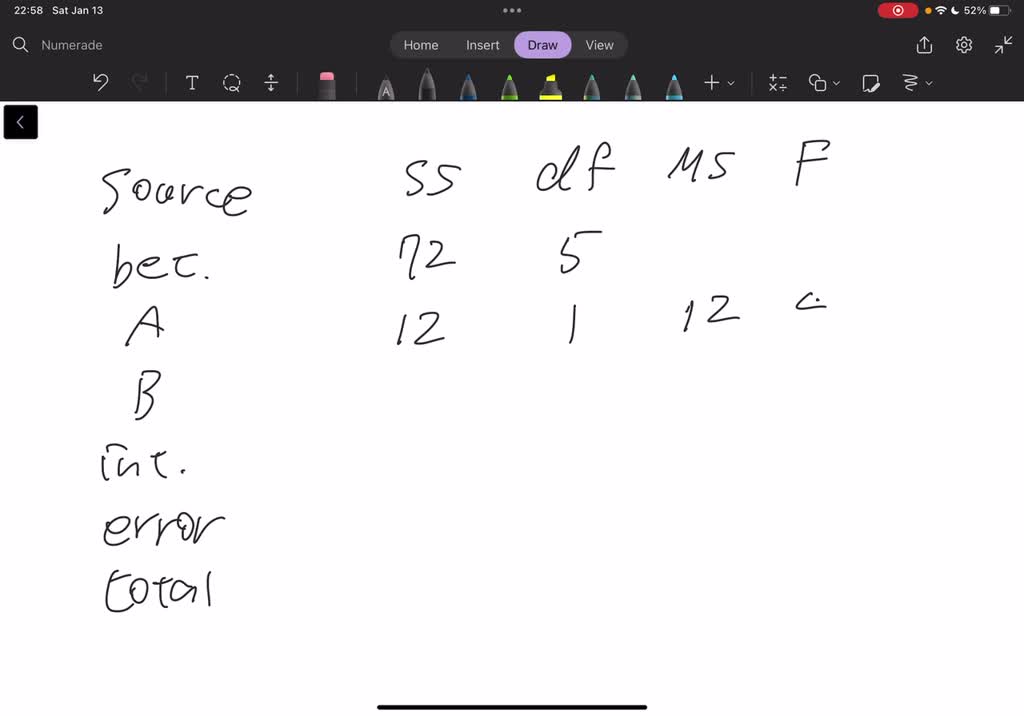 22:58 Sat Jan 13 52%
Numerade Home Insert Draw View
T A
Source SS df MS F
bet. 72 5
A 12 1 12
B
int.
error
total